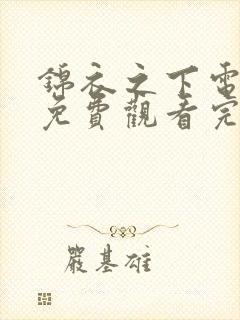 錦衣之下電
免費觀看完
嚴基雄